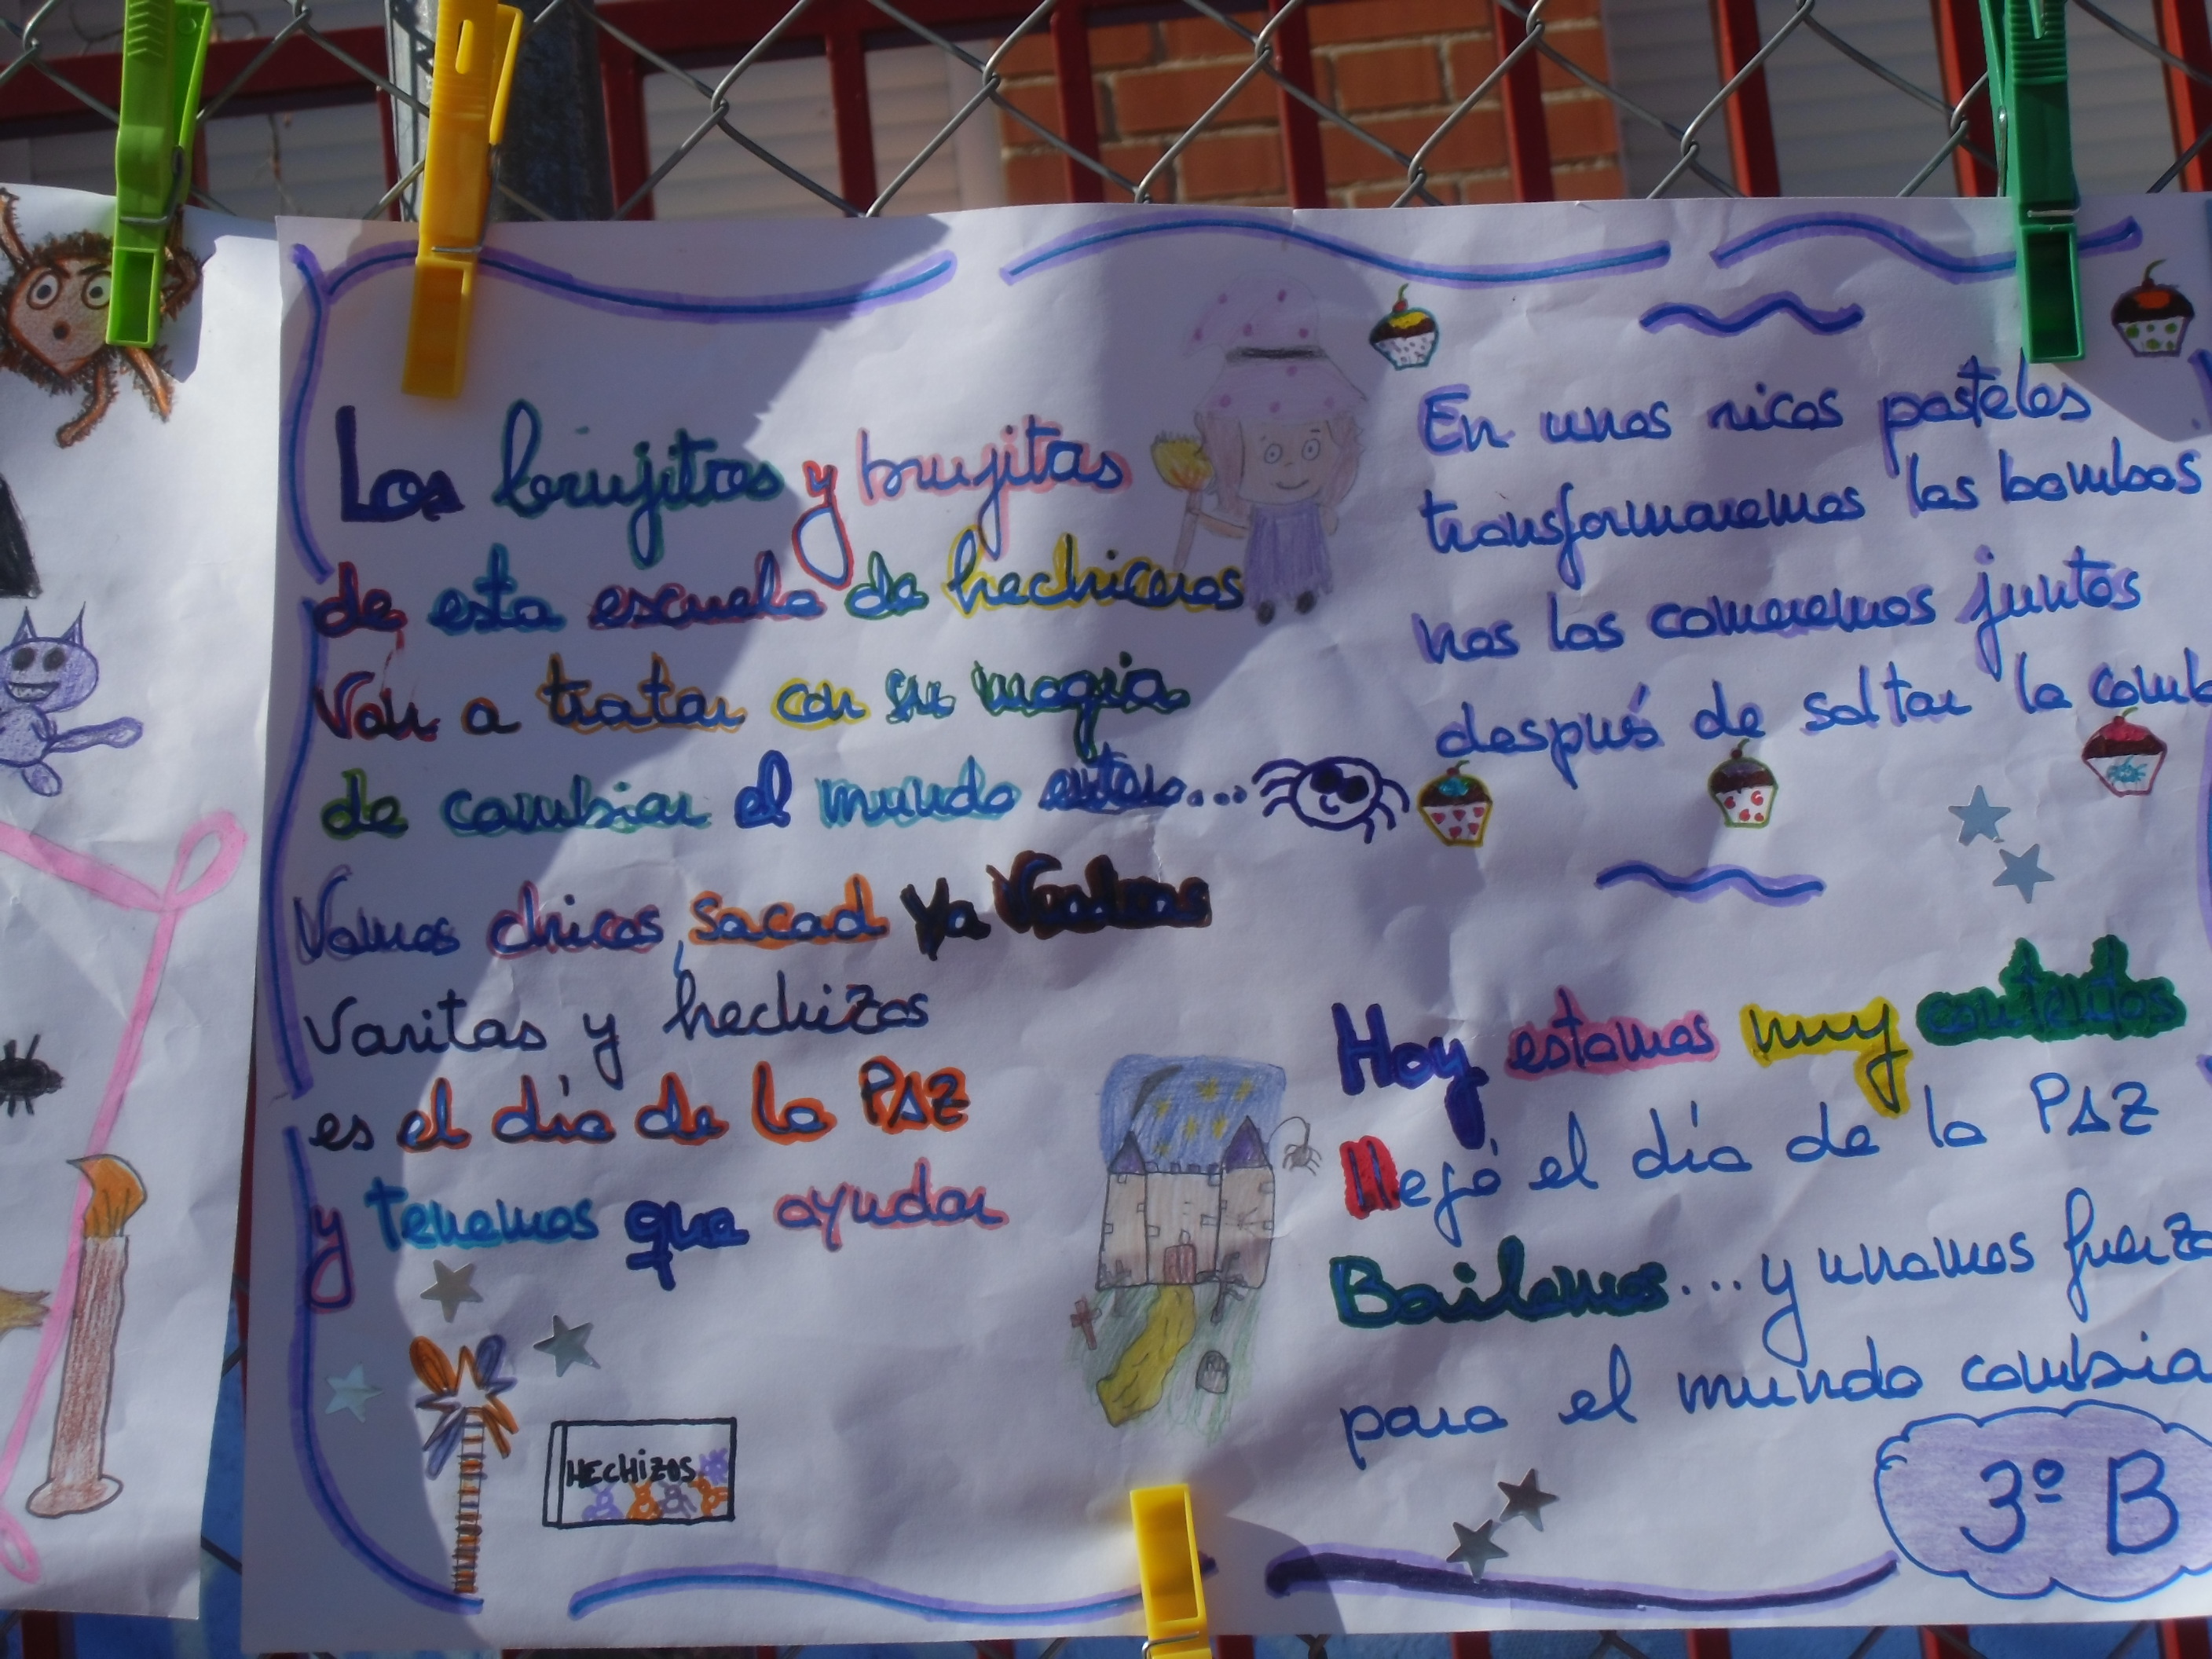 Los brujitos y brujitas
de esta escuela de hechiceros
Van a tratar con su magia
de cambiar el mundo entero...
Vamos chicos, sacad ya vuestras
Varitas y hechizos
es el día de la PAZ
y tenemos que ayudar
HECHIZOS
En unos ricos pasteles
transformaremos las bombas
nos los comeremos juntos
después de saltar la comb
Hoy estamos muy contentos
llegó el día de la PAZ
Bailemos... y unamos fuerza
para el mundo cambia
3º B